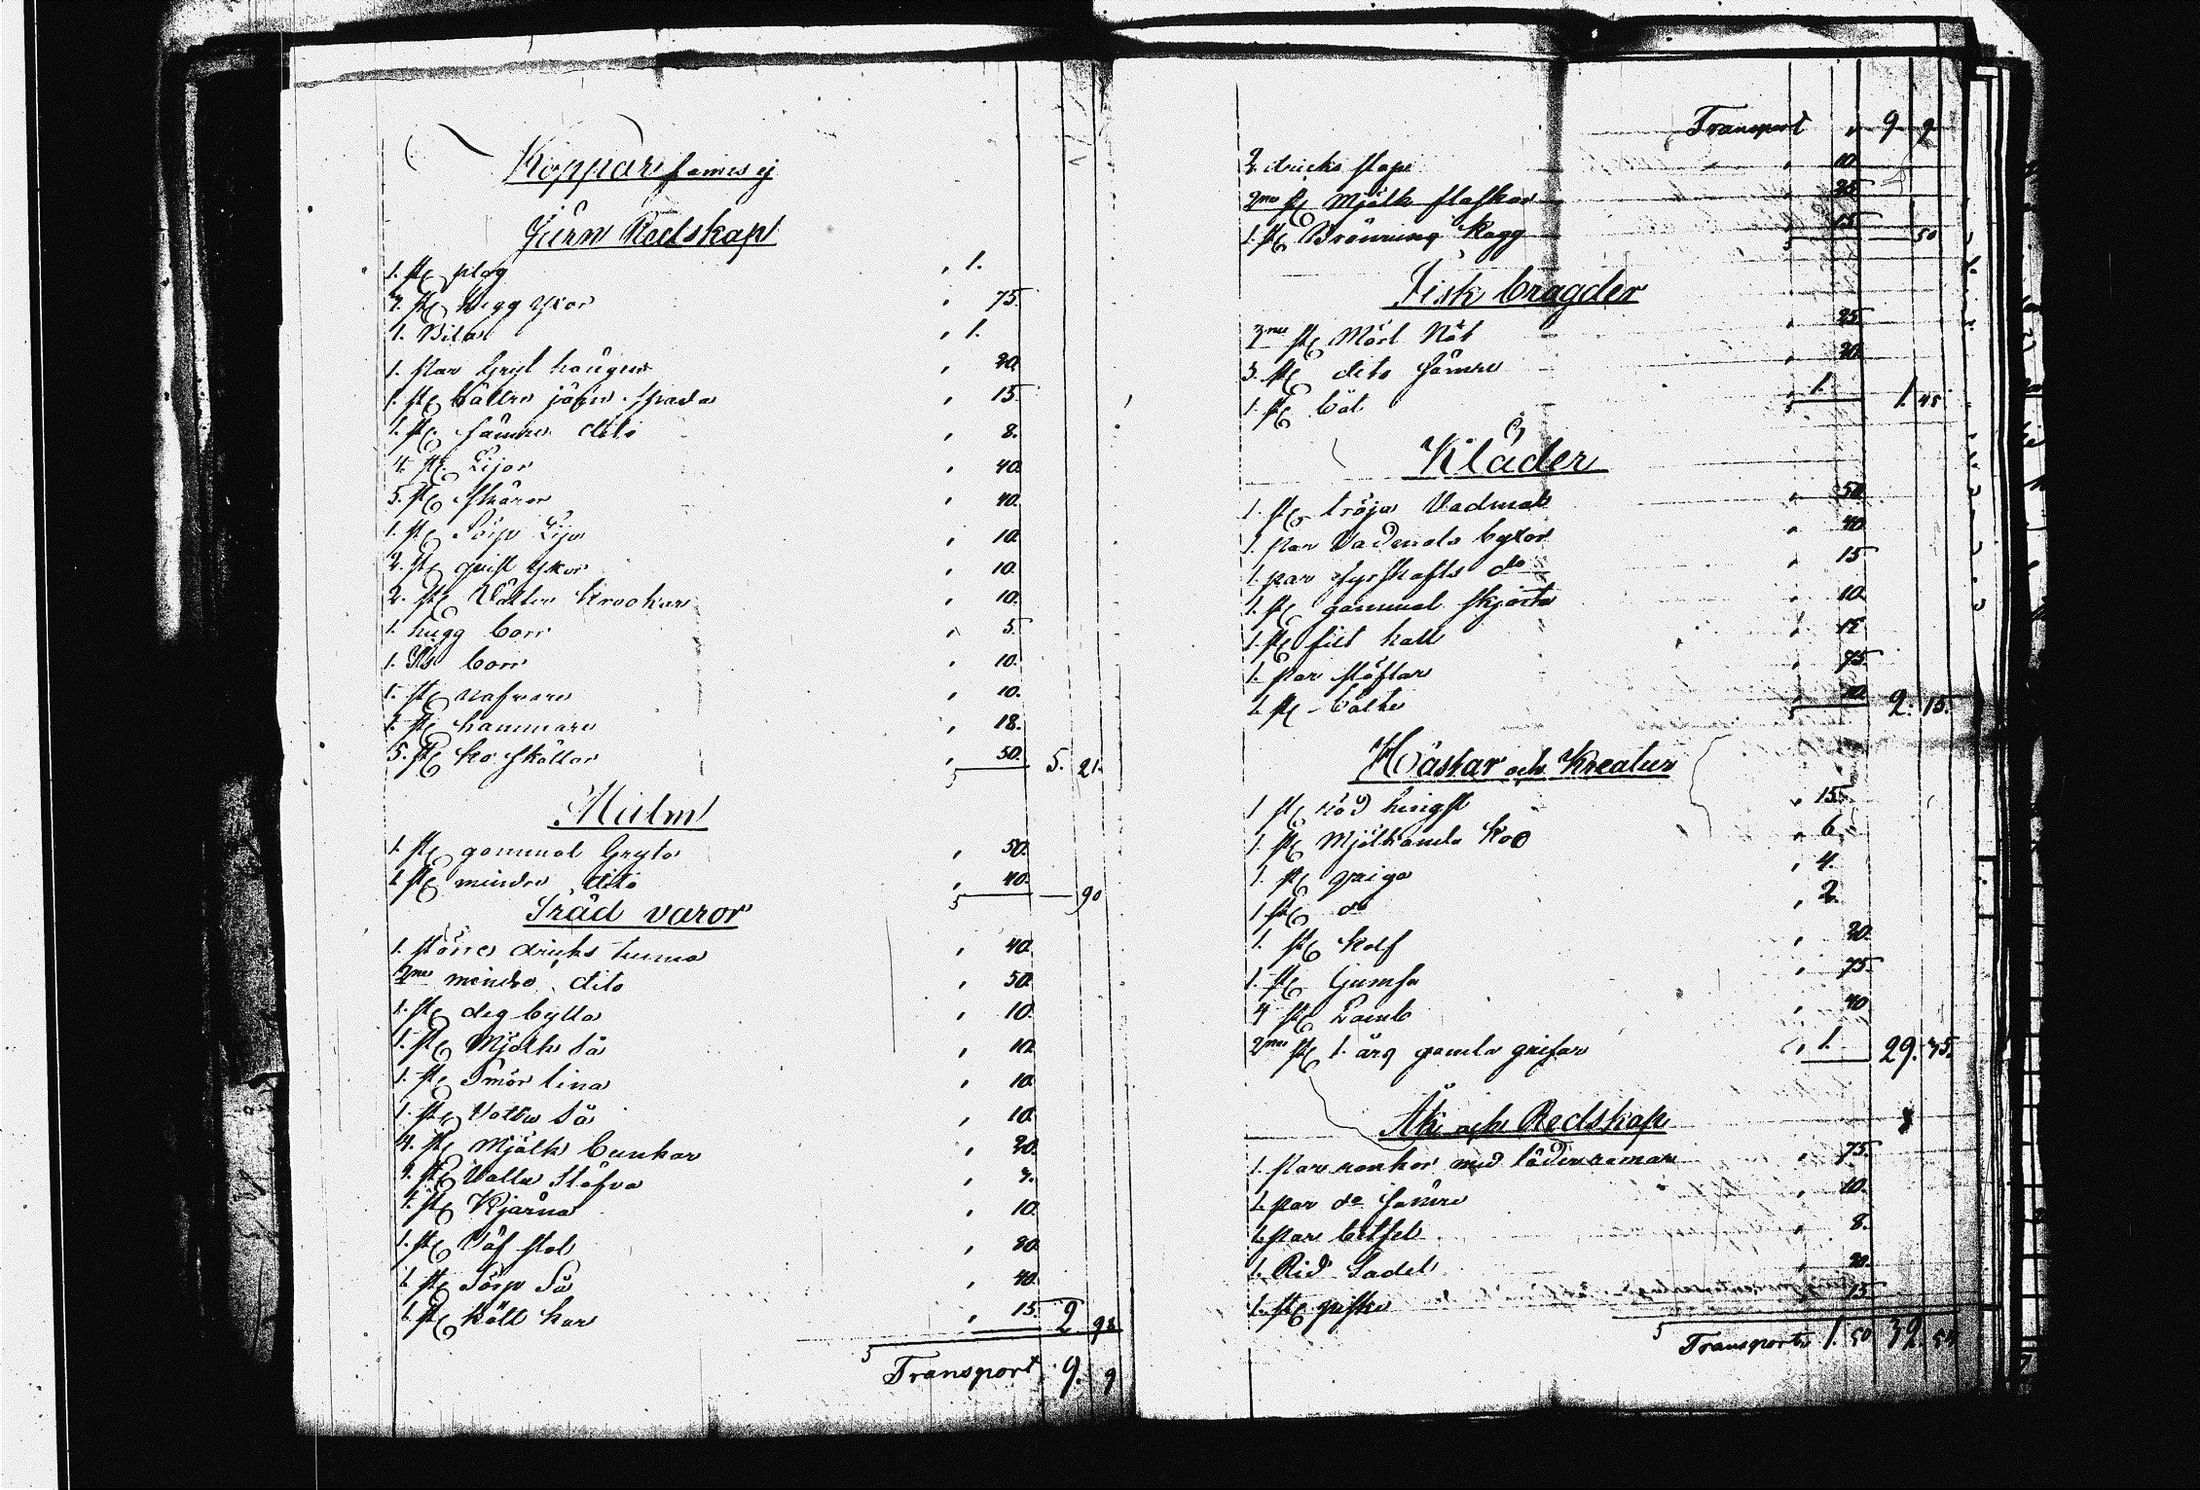 Koppar fannes ej
Järn Redskap
1. st plog , 1.
2. st hugg yxor , 75
1. Bila , 1.
1. par Gryt hängen , 20
1. st bättre järn spada , 15
1. st sämre dito , 8.
4. st Lijor , 40
5. st skäror , 40.
1. st Sörp Lija , 10
2. st quist yxor , 10.
2. st Vatten krookar , 10.
1. hugg borr , 5
1. Ps borr , 10.
1. st nafvare , 10.
1. st hammare , 18.
5. st ko skällor , 50. 5. 21.
Malm
1. st gammal Gryta , 50.
1 st mindre dito , 40. — 90
Träd varor
1. större dricks tunna , 40.
2ne mindre dito , 50
1. st deg bytta , 10.
1. st Mjölk Så , 10
1. st Smör tina , 10
1. st Vatten Så , 10.
4. st Mjölk bunkar , 20.
st Vatten Stäfva , 3.
1. st Kjärna , 10.
1. st Väf stol , 80
1. st Sörp Så , 40.
1. st Käll kar , 15 2 98
Transport 9. 9
Transport , 9. 9
2. dricks stop , 10
2ne st Mjölk flaskor , 25
1. st Bränvins Kagg , 15 — 50
Fisk bragder
2ne st Mört Nät , 25
3. st dito sämre , 20
1. st båt , 1. 1. 45
Kläder
1. st tröja Vadmal , 50
1. par Vadmals byxor , 40
1. par fyrskafts do , 15
1. st gammal skjorta , 10
1. st filt hatt , 15
1. par stöflar , 75.
1. st bälte , 10 2. 15.
Hästar och Kreatur
1 st röd hingst , 15.
1. st Mjölkande Ko , 6.
1. st qviga , 4.
1 st do , 2.
1. st Kalf , 20.
1. st Gumse , 75.
4 st Lamb , 40
2ne st 1. årg gamla grisar , 1. 29. 35.
Åk och Redskap
1. par rankor med läderremar , 75.
1. par do sämre , 10.
1. par betsel , 8.
1. Rid Sadel , 20.
1. st piska , 15
Transport 1. 50 39. 54